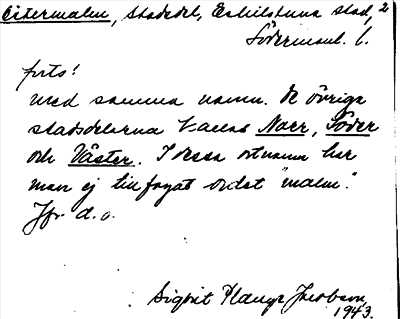 Östermalm, stadsdel, Eskilstuna stad, 2
Södermanl. l.
forts!
med samma namn. De övriga
stadsdelarna kallas Norr, Söder
och Väster. I dessa ortnamn har
man ej tillfogat ordet "malm".
Jfr d.o.
Sigbrit Plaenge Jacobson,
1943.